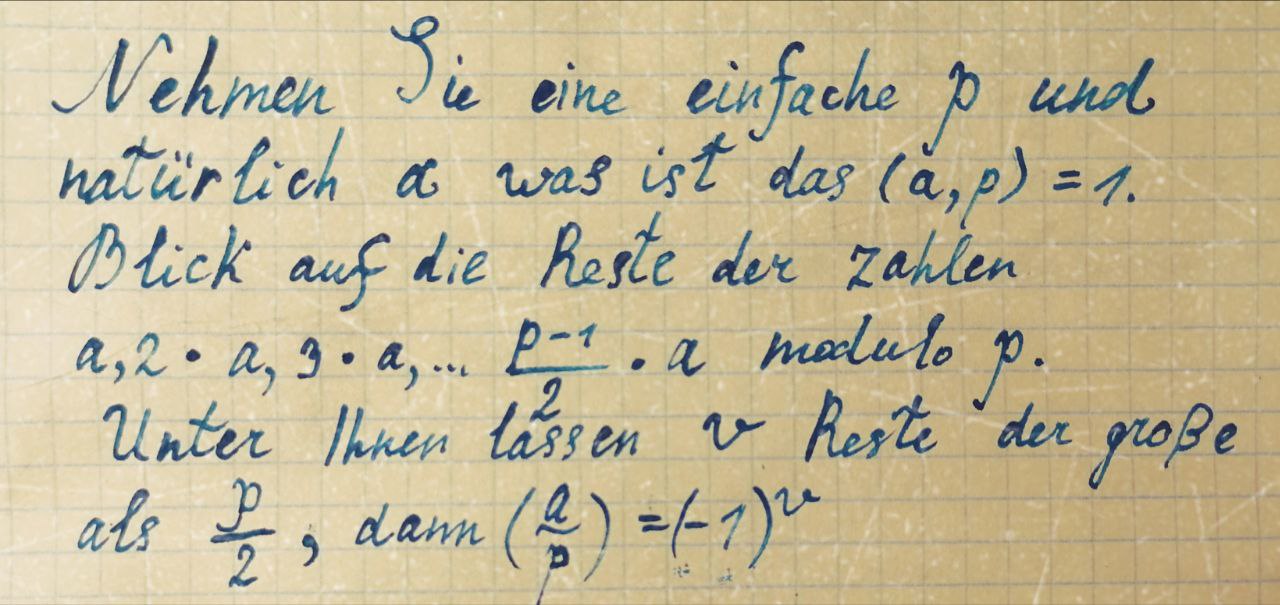 Nehmen Sie eine einfache p und
natürlich a was ist das (a, p) = 1.
Blick auf die Reste der zahlen
a, 2 · a, 3 · a, ... \frac{p-1}{2} · a modulo p.
Unter Ihnen lassen v Reste der große
als \frac{p}{2}, dann (\frac{a}{p}) = (-1)^v